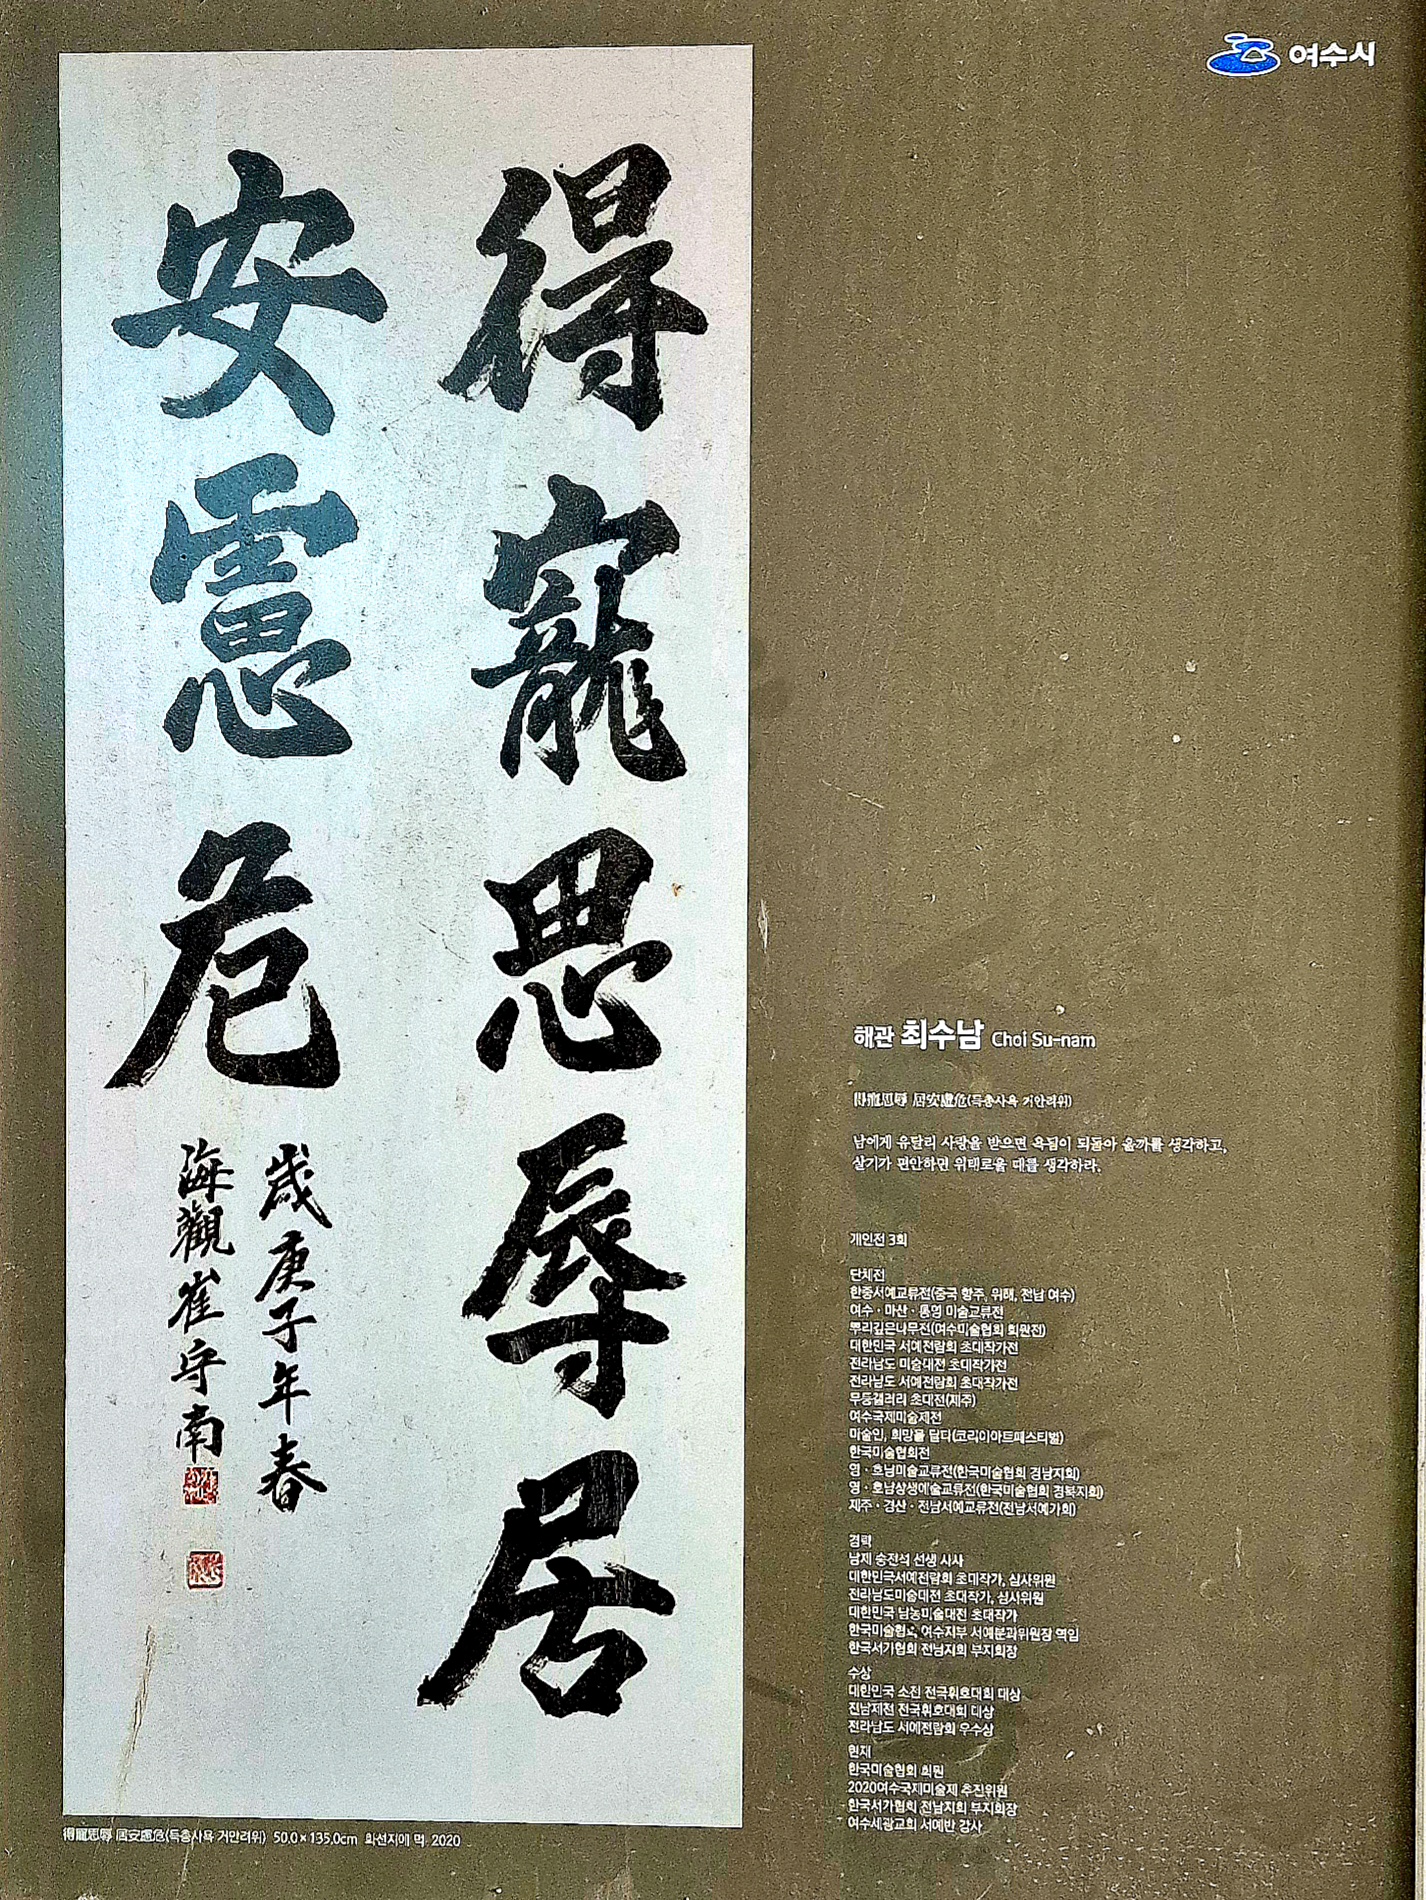 여수시
得寵思辱居
安慮危
歲庚子年春
海觀崔守南
해관 최수남 Choi Su-nam
得寵思辱 居安慮危(득총사욕 거안려위)
남에게 유달리 사랑을 받으면 욕됨이 되돌아 올까를 생각하고,
살기가 편안하면 위태로울 때를 생각하라.
개인전 3회
단체전
한중서예교류전(중국 항주, 위해, 전남 여수)
여수·마산·통영 미술교류전
뿌리깊은나무전(여수미술협회 회원전)
대한민국 서예전람회 초대작가전
전라남도 미술대전 초대작가전
전라남도 서예전람회 초대작가전
무등갤러리 초대전(제주)
여수국제미술제전
미술인, 희망을 달다(코리아아트페스티벌)
한국미술협회전
영·호남미술교류전(한국미술협회 경남지회)
영·호남상생예술교류전(한국미술협회 경북지회)
제주·경산·전남서예교류전(전남서예가회)
경력
남제 송전석 선생 사사
대한민국서예전람회 초대작가, 심사위원
전라남도미술대전 초대작가, 심사위원
대한민국 남농미술대전 초대작가
한국미술협회 여수지부 서예분과위원장 역임
한국서가협회 전남지회 부지회장
수상
대한민국 소전 전국휘호대회 대상
전남제전 전국휘호대회 대상
전라남도 서예전람회 우수상
현재
한국미술협회 회원
2020여수국제미술제 추진위원
한국서가협회 전남지회 부지회장
여수세광교회 서예반 강사
得寵思辱 居安慮危(득총사욕 거안려위) 50.0×135.0cm 화선지에 먹, 2020